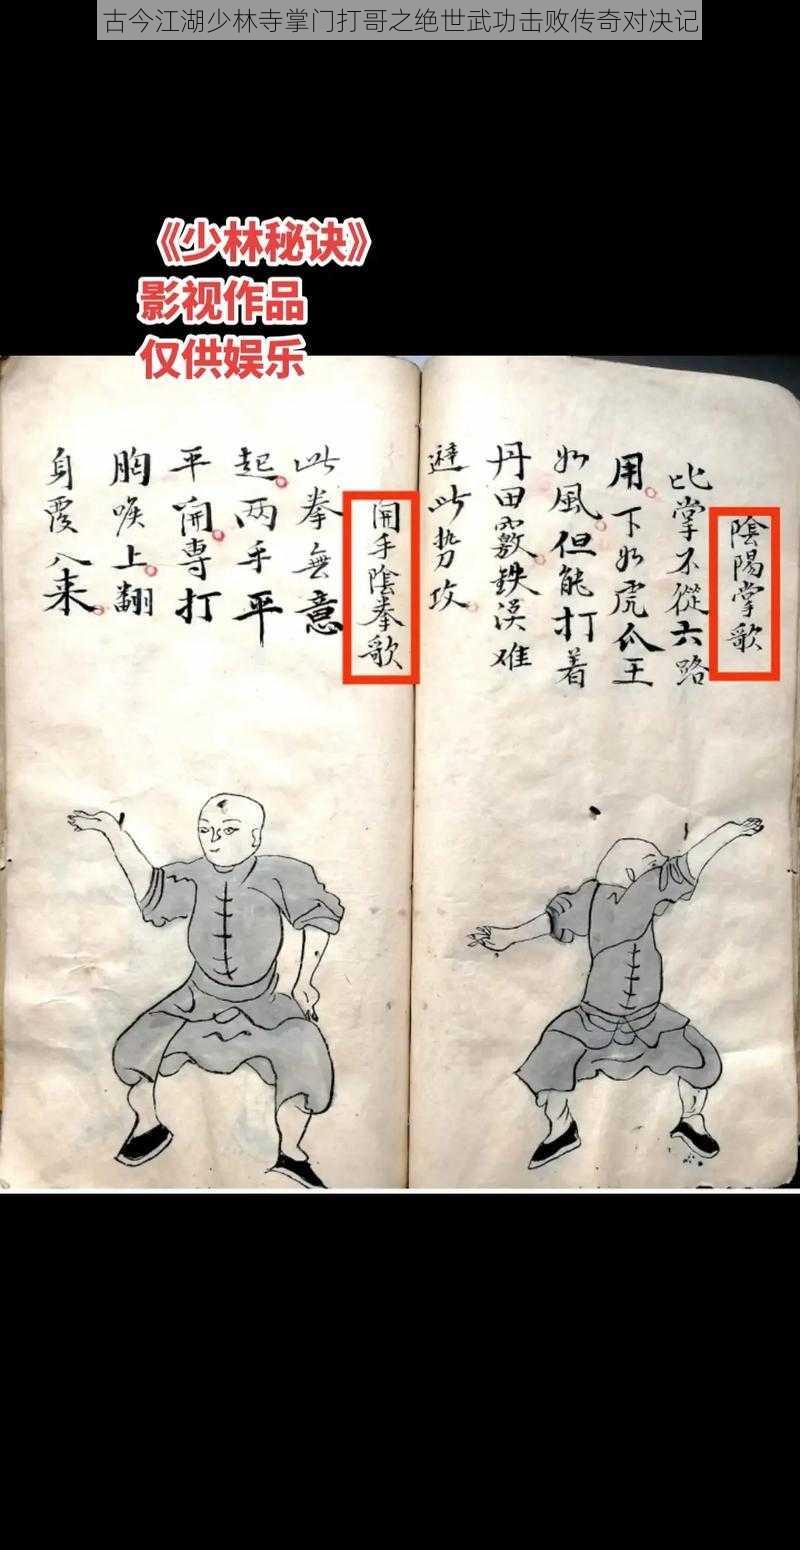 古今江湖少林寺掌门打哥之绝世武功击败传奇对决记
《少林秘诀》
影视作品
仅供娱乐
陰陽掌歌
此掌不從六路
用下如虎爪王
如風但能打着
丹田竅鉄漢难
避此势攻
開手陰拳歌
此拳無意
起两手平
平開專打
胸喉上翻
身覆八来